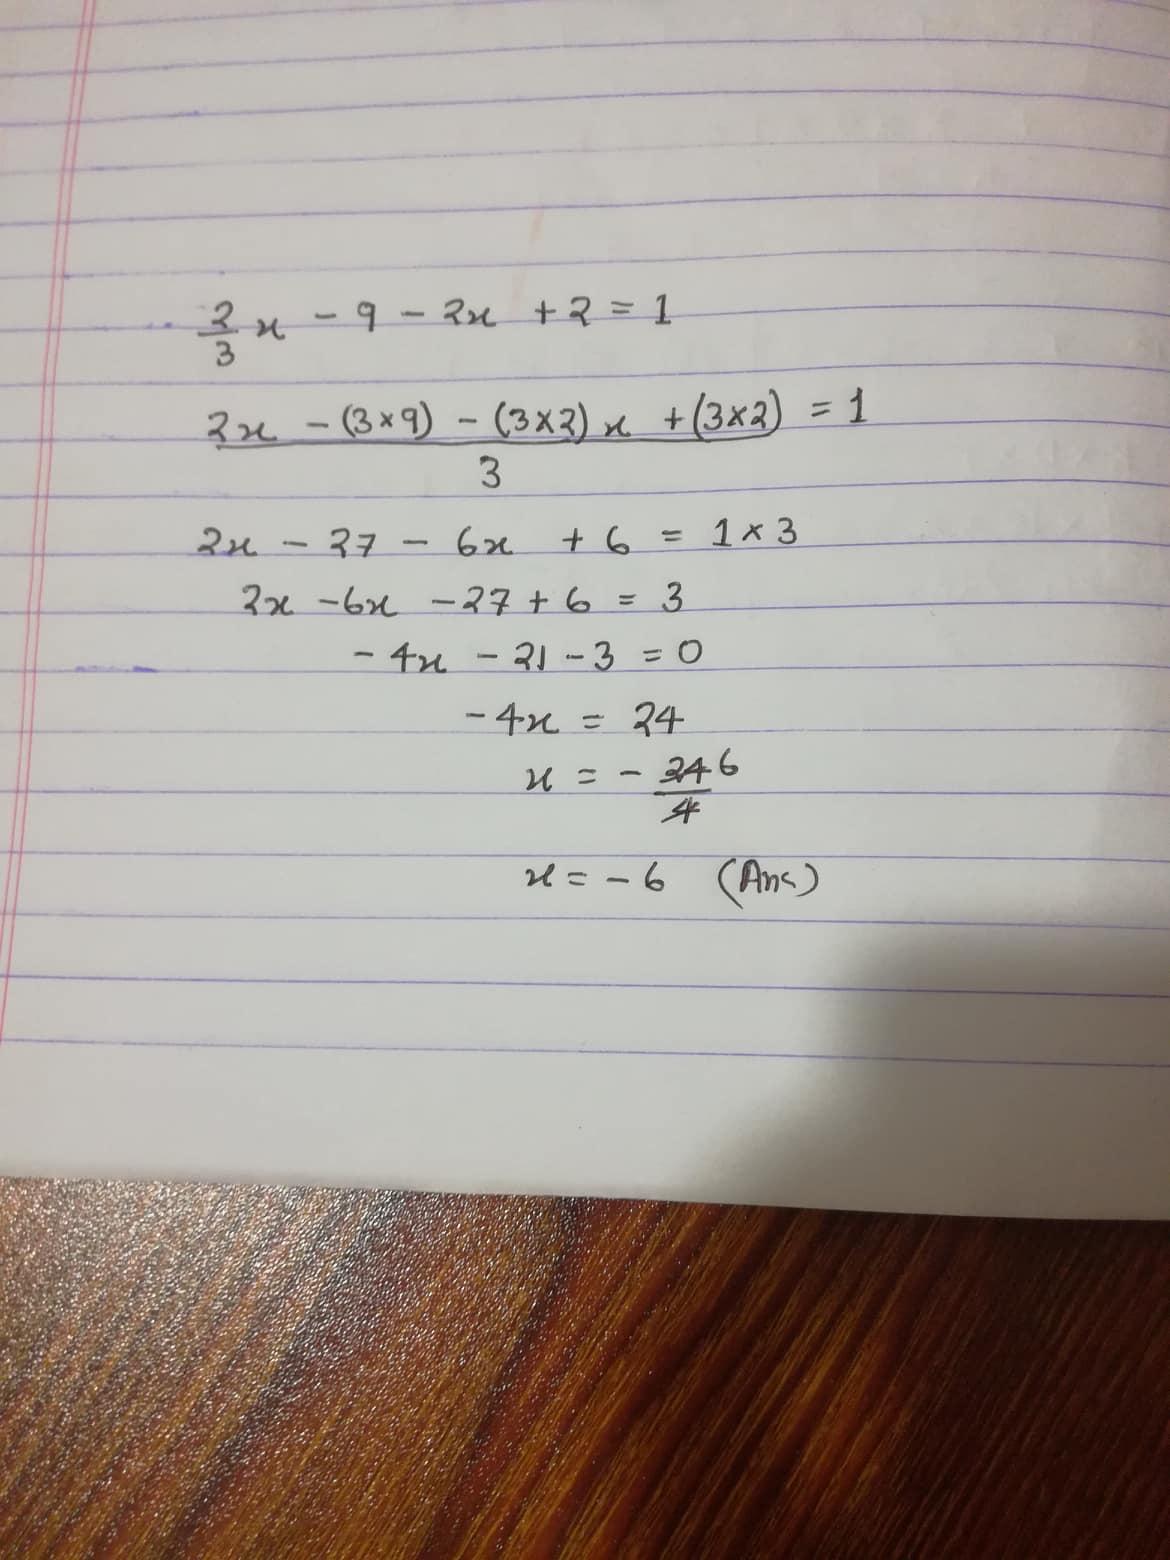 2/3 x - 9 - 2x + 2 = 1
2x - (3×9) - (3×2)x + (3×2) / 3 = 1
2x - 27 - 6x + 6 = 1×3
2x - 6x - 27 + 6 = 3
- 4x - 21 - 3 = 0
- 4x = 24
x = - 24 6 / 4
x = - 6 (Ans)